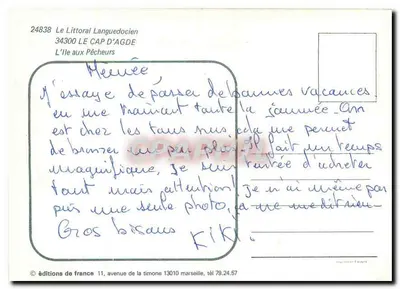 24838 Le Littoral Languedocien
34300 LE CAP D'AGDE
L'Ile aux Pêcheurs
Mémée,
J'essaye de passer de bonnes vacances
en me trainant toute la journée. On
est chez les tous nus, cela me permet
de bronzer un peu plus. Il fait un temps
magnifique, je suis tentée d'acheter
tout mais attention, je n'ai même pas
pris une seule photo, ça ne me dit rien
Gros bisous
KiKi
© éditions de france 11, avenue de la timone 13010 marseille, tél 79.24.57